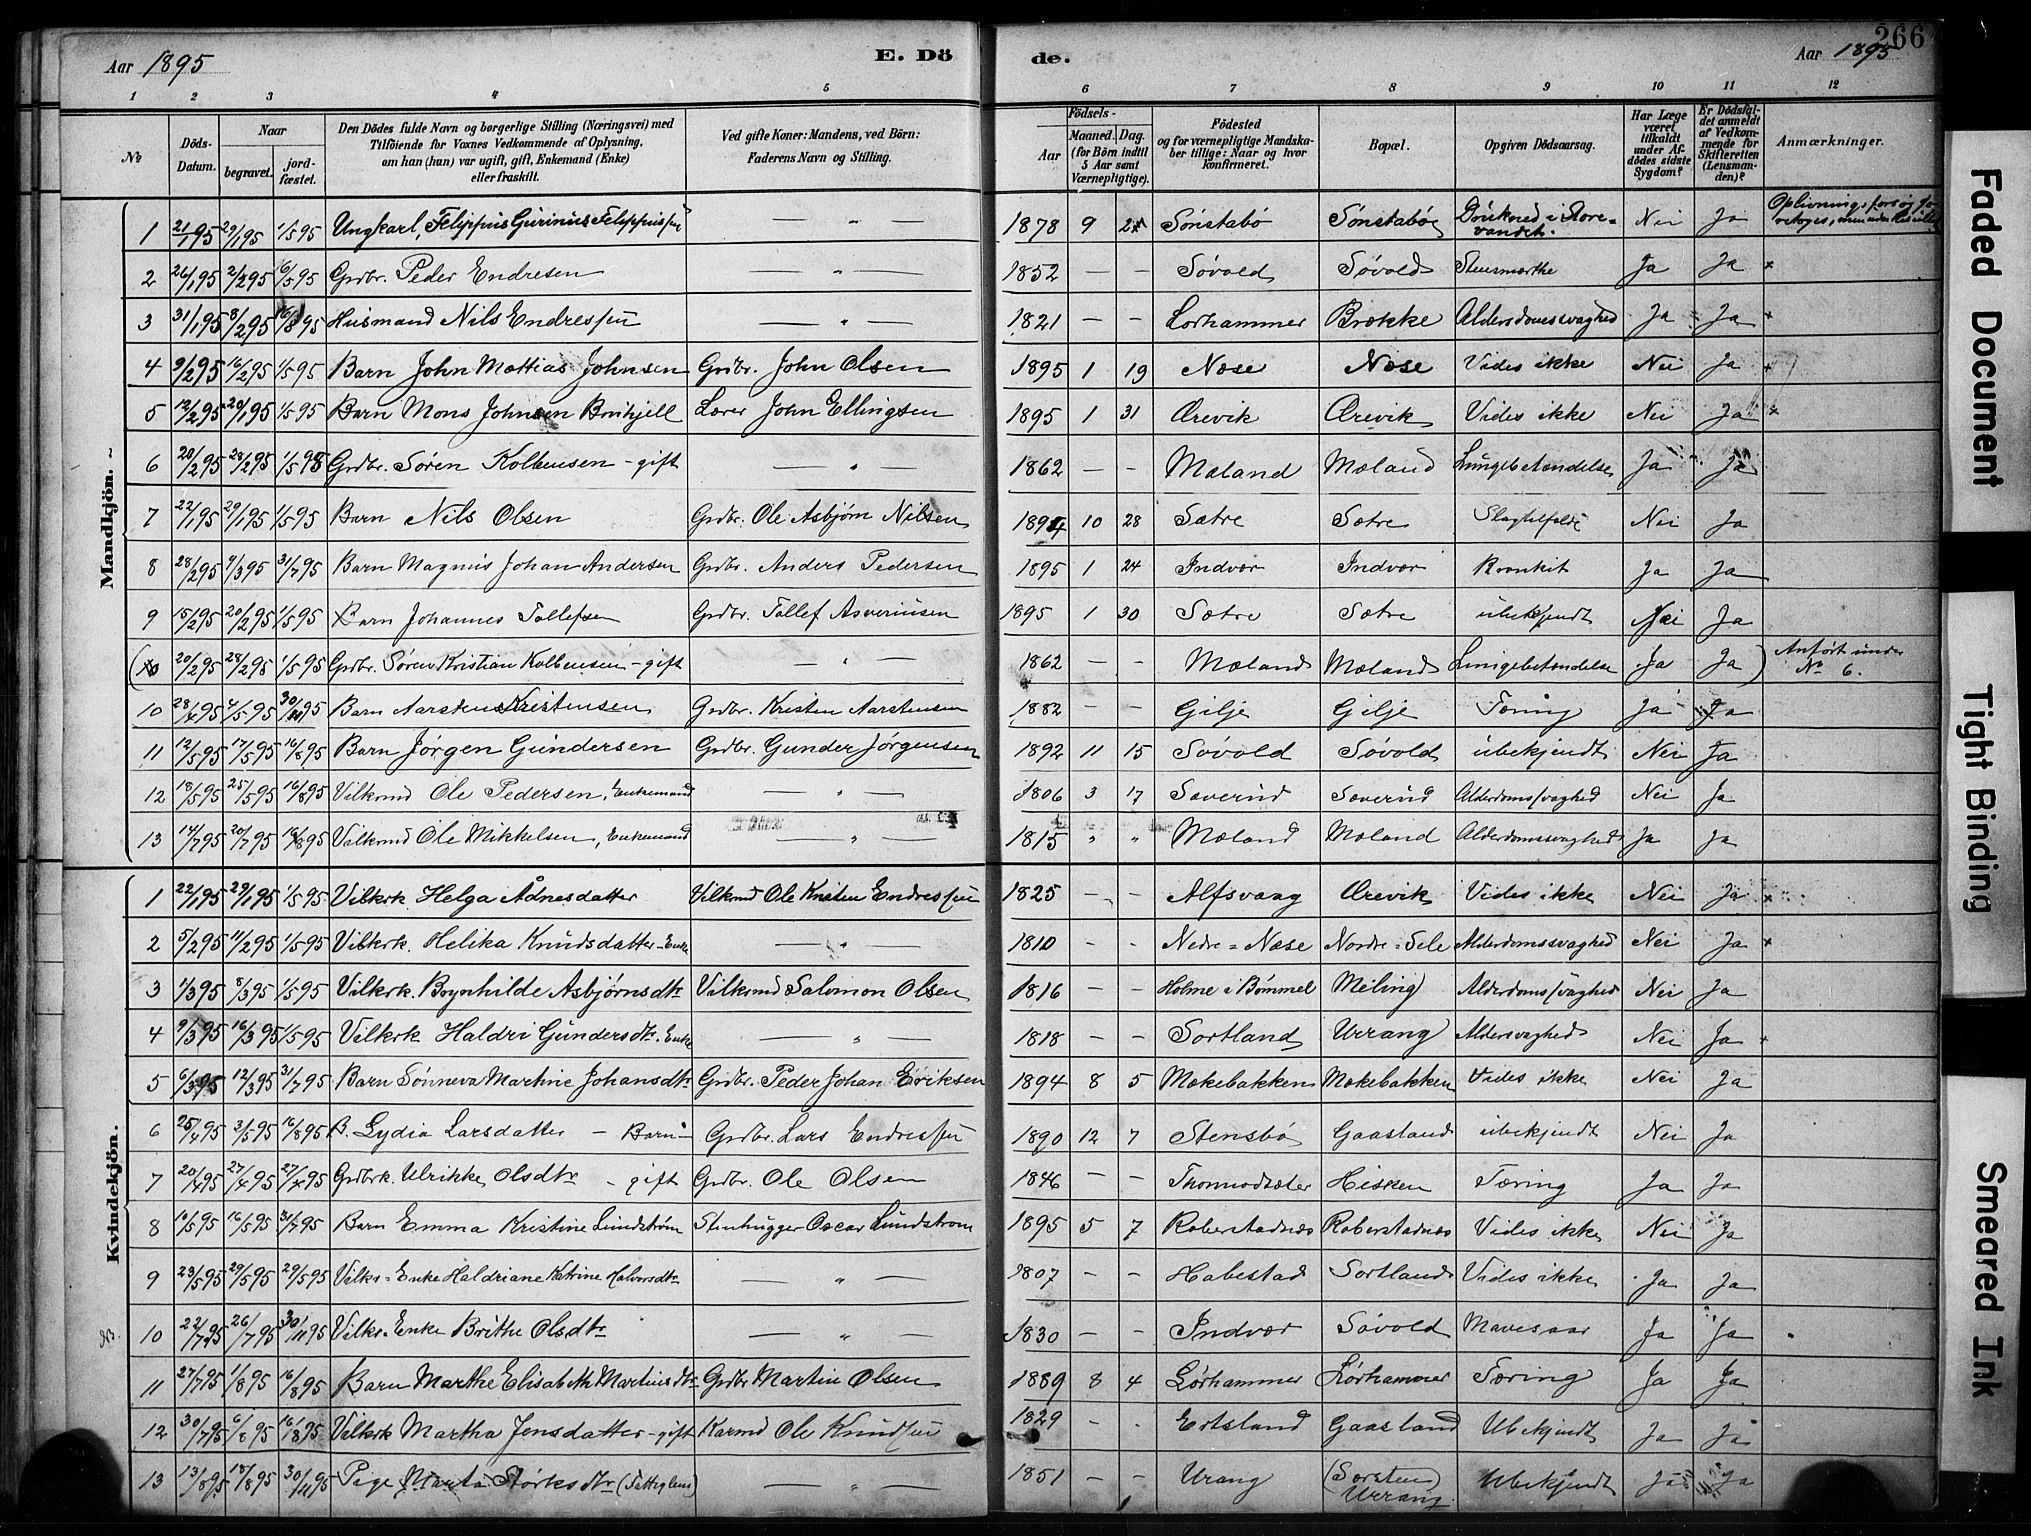 266
Aar 1895 E. Dö de. Aar 1895
1 2 3 4 5 6 7 8 9 10 11 12
No Döds-Datum. Naar begravet. jordfæstet. Den Dödes fulde Navn og borgerlige Stilling (Næringsvei) med Tilföiende for Voxnes Vedkommende af Oplysning, om han (hun) var ugift, gift, Enkemand (Enke) eller fraskilt. Ved gifte Koner: Mandens, ved Börn: Faderens Navn og Stilling. Födsels- Aar Maaned. Dag. (for Börn indtil 5 Aar samt Værnepligtige). Födested og for værnepligtige Mandskaber tillige: Naar og hvor konfirmeret. Bopæl. Opgiven Dödsaarsag. Har Læge været tilkaldt under Afdödes sidste Sygdom? Er Dödsfaldet anmeldt af Vedkommende for Skifteretten (Lensmanden)? Anmærkninger.
Mandkjön.
1 21/1 95 29/1 95 1/5 95 Ungkarl, Felippus Gurinius Felippussen — " — 1878 9 Sönstabö Sönstabö Drukned i Storevandet. Nei Ja
2 26/1 95 2/2 95 6/5 95 Grdbr. Peder Endresen — " — 1852 — — Søvold Søvold Ja Ja
3 31/1 95 8/2 95 16/8 95 Husmand Nils Endressen — " — 1821 — — Lorhammer Brække Alderdomssvaghed Ja Ja
4 9/2 95 16/2 95 1/5 95 Barn John Mattias Johnsen Grdbr. John Olsen 1895 1 19 Næse Næse Vides ikke Nei Ja
5 12/2 95 20/1 95 1/5 95 Barn Mons Johnsen Lærer John Ellingsen 1895 1 31 Ørevik Ørevik Vides ikke Nei Ja
6 20/2 95 28/2 95 1/5 95 Grdbr. Søren Kolbensen - gift — " — 1862 — — Mæland Mæland Lungebetændelse Ja Ja
7 22/1 95 29/1 95 1/5 95 Barn Nils Olsen Grdbr. Ole Asbjørn Nilsen 1894 10 28 Sætre Sætre Slagtilfælde Nei Ja
8 28/2 95 4/3 95 31/7 95 Barn Magnus Johan Andersen Grdbr. Anders Pedersen 1895 1 24 Indvær Indvær Bronkit Ja Ja
9 15/2 95 20/2 95 1/5 95 Barn Johannes Tollefsen Grdbr. Tollef Asveriusen 1895 1 30 Sætre Sætre ubekjendt Nei Ja
(10 20/2 95 28/2 95 1/5 95 Grdbr. Søren Kristian Kolbensen - gift — " — 1862 — — Mæland Mæland Lungebetændelse Ja Ja ) Anført under No 6.
10 28/4 95 4/5 95 30/11 95 Barn Aarsten Kristensen Grdbr. Kristen Aarstensen 1882 Gilje Gilje Tæring Ja Ja
11 12/5 95 17/5 95 16/8 95 Barn Jørgen Gundersen Grdbr. Gunder Jørgensen 1892 11 15 Søvold Søvold ubekjendt Nei Ja
12 18/5 95 25/5 95 16/8 95 Vilkmd Ole Pedersen, Enkemand — " — 1806 3 17 Sæverud Sæverud Alderdomssvaghed Nei Ja
13 14/7 95 20/7 95 16/8 95 Vilkmd Ole Mikkelsen, Enkemand — " — 1815 " " Mæland Mæland Alderdomssvaghed Ja Ja
Kvindekjön.
1 22/1 95 29/1 95 1/5 95 Vilkrk Helga Ådnesdatter Vilkmd Ole Kristen Endressen 1825 — — Alfsvaag Ørevik Vides ikke Nei Ja
2 5/2 95 11/2 95 1/5 95 Vilkrk. Helika Knudsdatter - Enke — " — 1810 — — Nedre = Næse Nordre = Sele Alderdomssvaghed Nei Ja
3 1/3 95 8/3 95 1/5 95 Vilkrk. Brynhilde Asbjørnsdtr Vilkmd Salomon Olsen 1816 — — Holme i Bømmel Meling Alderdomssvaghed Nei Ja
4 9/3 95 16/3 95 1/5 95 Vilkrk Haldri Gundersdtr. Enke — " — 1818 — — Sortland Urrang Aldersvaghed Nei Ja
5 6/3 95 12/3 95 31/7 95 Barn Sønneva Martine Johansdtr Grdbr. Peder Johan Eriksen 1894 8 5 Mækebakken Mækebakken Vides ikke Nei Ja
6 25/4 95 3/5 95 16/8 95 B. Lydia Larsdatter - Barn - Grdbr. Lars Endressen 1890 12 7 Stensbø Gaasland ubekjendt Nei Ja
7 20/4 95 27/4 95 27/4 95 Grdbrk. Ulrikke Olsdtr - gift Grdbr. Ole Olsen 1846 — — Thormodsæter Hisken Tæring Ja Ja
8 10/5 95 16/5 95 31/7 95 Barn Emma Kristine Lundstrøm Stenhugger Oscar Lundstrøm 1895 5 7 Roberstadnæs Roberstadnæs Vides ikke Nei Ja
9 23/5 95 29/5 95 29/5 95 Vilkr = Enke Haldriane Katrine Halvorsdtr — " — 1807 — — Habestad Sortland Vides ikke Ja Ja
10 22/7 95 26/7 95 30/11 95 Vilkr = Enke Brithe Olsdtr — " — 1830 — — Indvær Søvold Mavesaar Ja Ja
11 27/7 95 1/8 95 16/8 95 Barn Marthe Elisabeth Martinsdtr Grdbr Martin Olsen 1889 8 4 Lørhammer Lørhammer Tæring Ja Ja
12 30/7 95 6/8 95 16/8 95 Vilkrk Martha Jensdatter - gift Kaarmd Ole Knudssen 1829 — — Ertsland Gaasland Ubekjendt Ja Ja
13 13/8 95 18/8 95 30/11 95 Pige Marta Størksdtr (Fattiglem) — " — 1851 — — Urang (Sorsten) Urrang Ubekjendt Ja Ja
Faded Document
Tight Binding
Smeared Ink